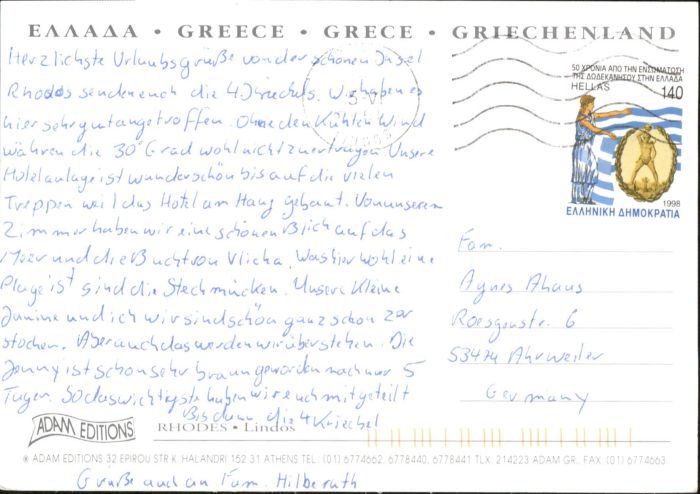 ΕΛΛΑΔΑ • GREECE • GRECE • GRIECHENLAND
Herzlichste Urlaubsgrüße von der schönen Insel
Rhodos senden euch die 4 Kriechels. Wir haben es
hier sehr gut angetroffen. Ohne den Kühlen Wind
währen die 30° Grad wohl nicht zu ertragen. Unsere
Hotelanlage ist wunderschön bis auf die vielen
Treppen weil das Hotel am Hang gebaut. Von unserem
Zimmer haben wir eine schönen Blick auf das
Meer und die Bucht von Vlicha. Was hier wohl eine
Plage ist sind die Stechmücken. Unsere Kleine
Janine und ich wir sind schön ganz schön zer
stochen. Aber auch das werden wir überstehen. Die
Jenny ist schon sehr braun geworden nach nur 5
Tagen. So das wichtigste haben wir euch mitgeteilt
Bis dann die 4 Kriechel
50 ΧΡΟΝΙΑ ΑΠΟ ΤΗΝ ΕΝΣΩΜΑΤΩΣΗ
ΤΗΣ ΔΩΔΕΚΑΝΗΣΟΥ ΣΤΗΝ ΕΛΛΑΔΑ
HELLAS 140
1998
ΕΛΛΗΝΙΚΗ ΔΗΜΟΚΡΑΤΙΑ
Fam.
Agnes Ahaus
Roesgenstr. 6
53474 Ahrweiler
Germany
ADAM EDITIONS
RHODES • Lindos
® ADAM EDITIONS 32 EPIROU STR K. HALANDRI 152 31 ATHENS TEL.: (01) 6774662, 6778440, 6778441 TLX: 214223 ADAM GR., FAX: (01) 6774663
Grüße auch an Fam. Hilberath